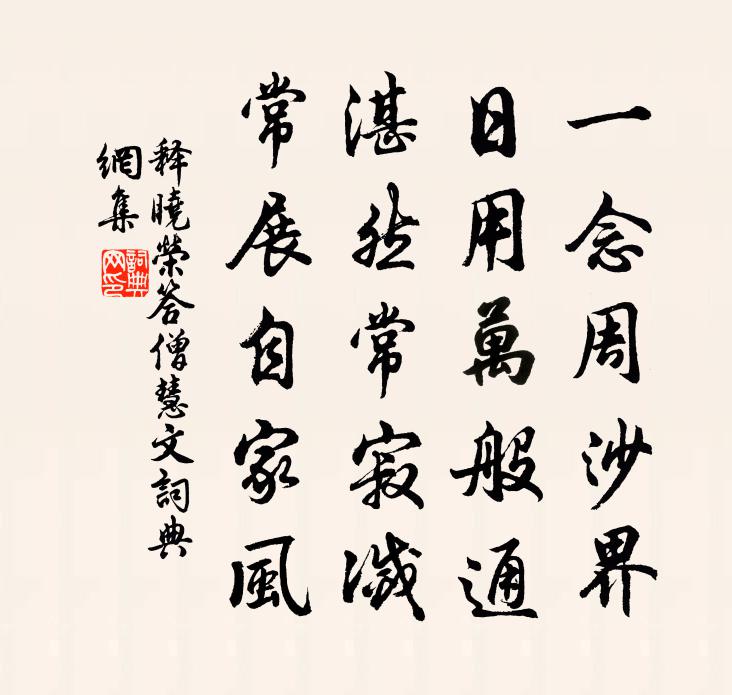 一念周沙界
日用萬般通
湛然常寂滅
常展自家風
释曉榮答僧慧文詞典
網集
詞典
网印